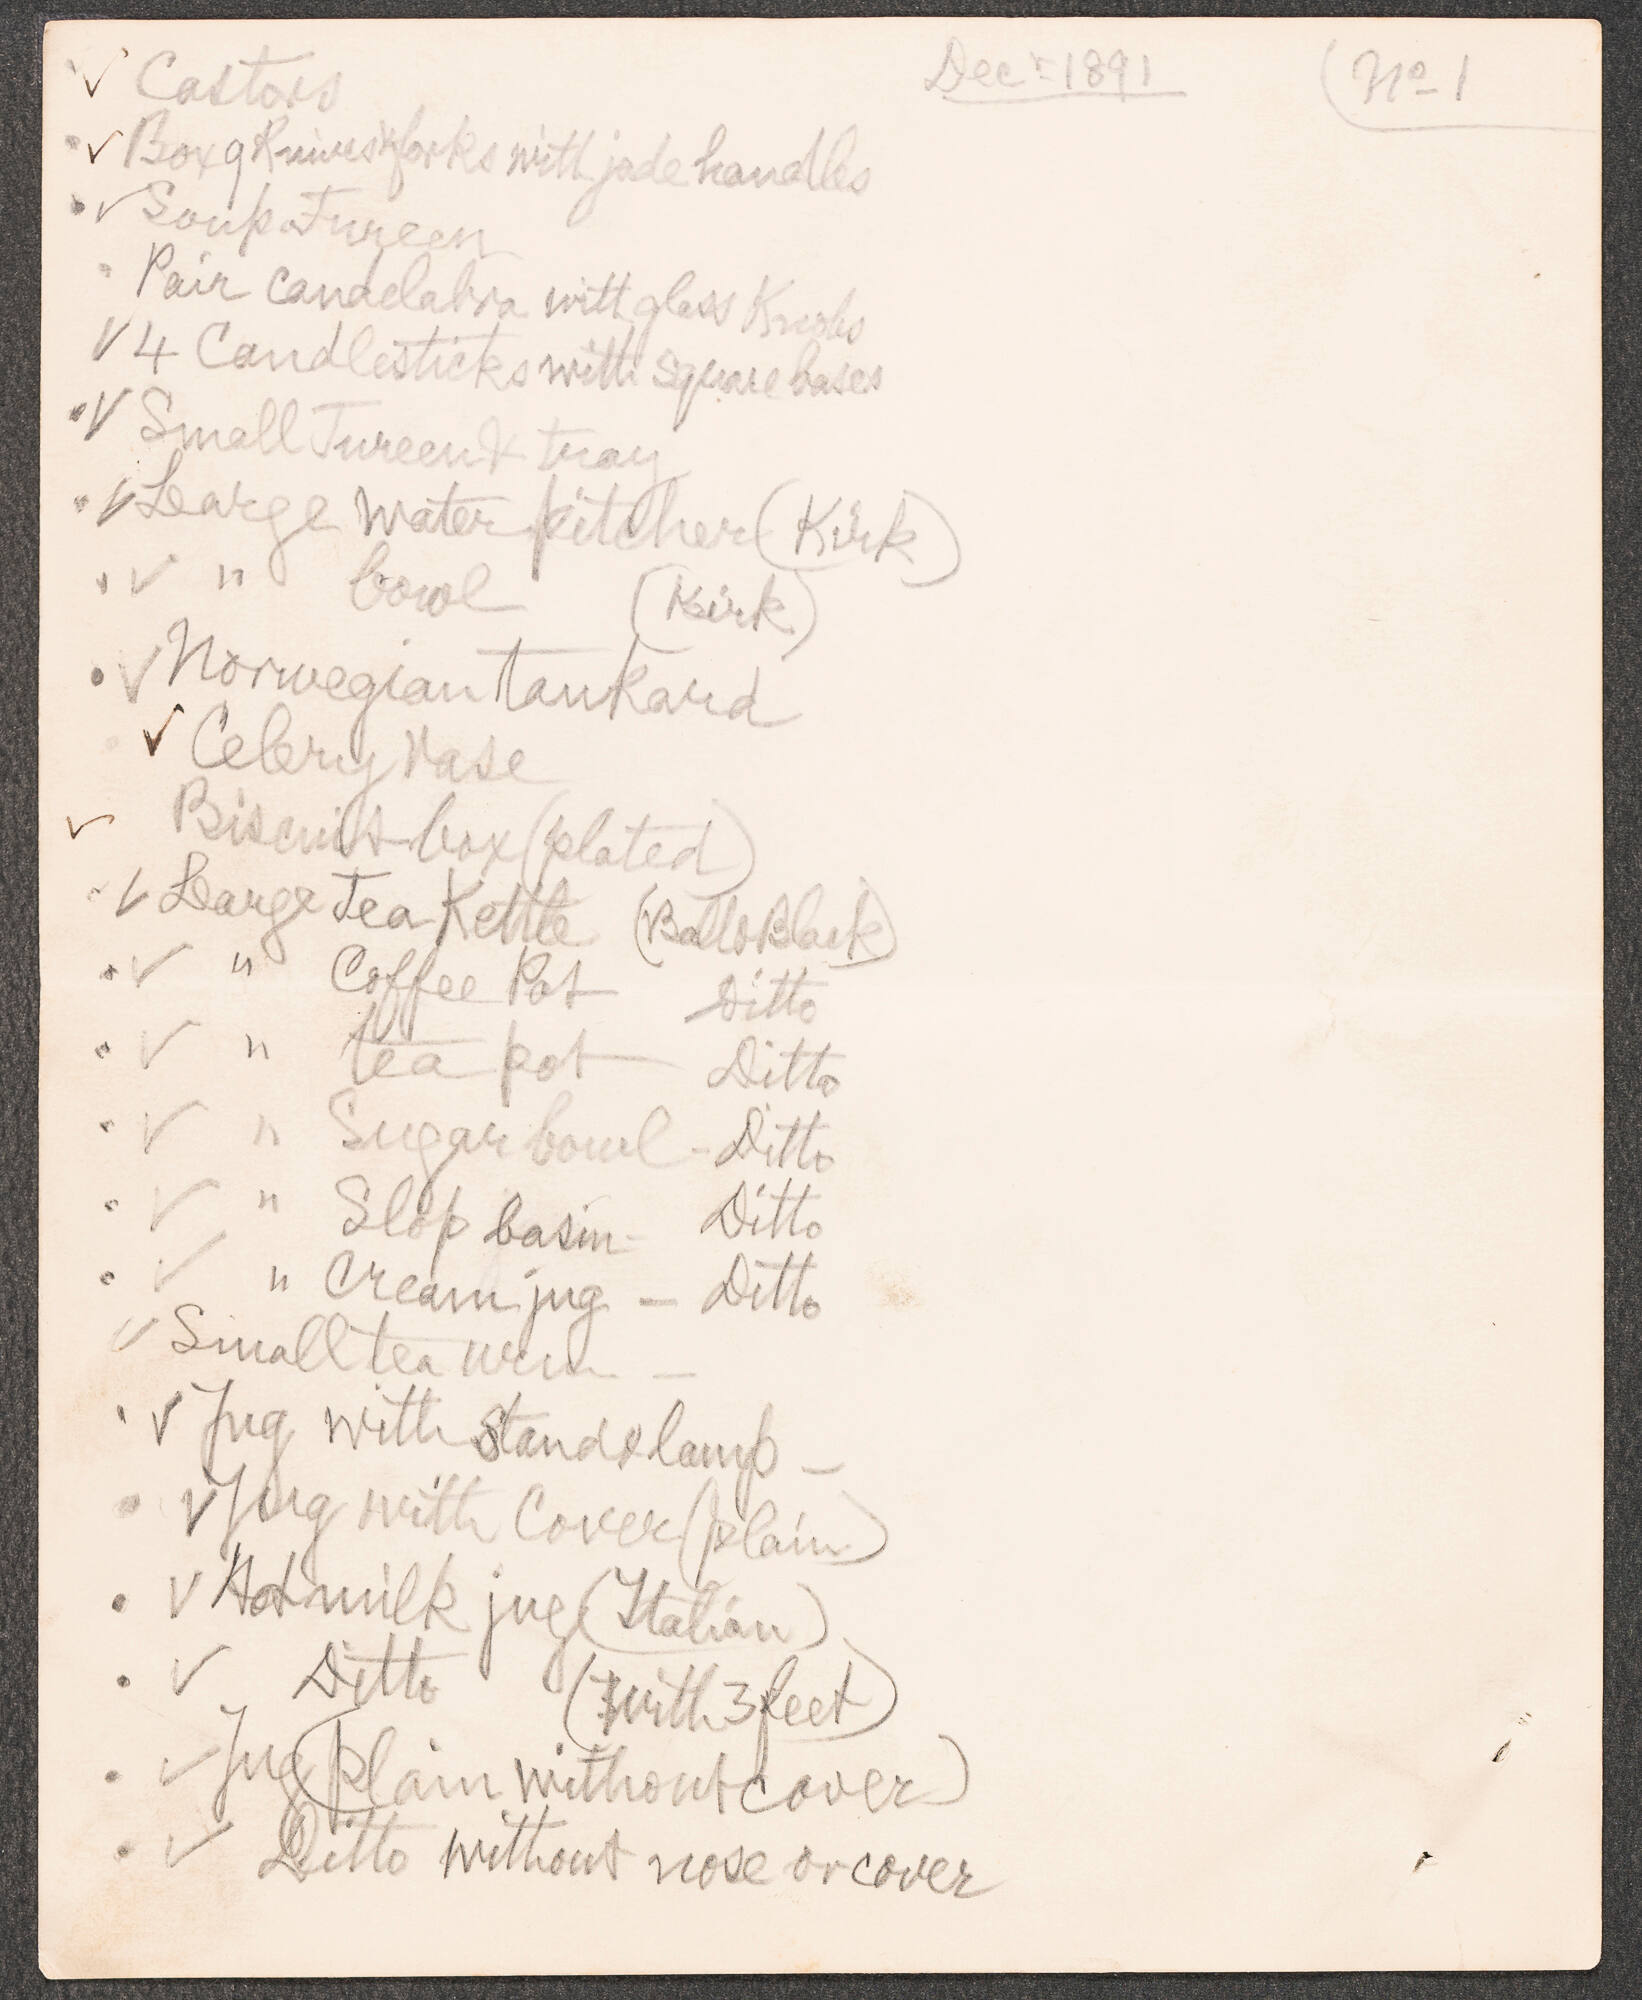 Decr 1891
(No 1
✓ Castors
✓ Box of Knives & forks with jade handles
✓ Soup Tureen
Pair candelabra with glass Knobs
✓ 4 Candlesticks with square bases
✓ Small Tureen & tray
✓ Large water pitcher (Kirk)
✓ " bowl (Kirk)
✓ Norwegian tankard
✓ Celery vase
✓ Biscuit box (plated)
✓ Large Tea Kettle (Ball & Black)
✓ " Coffee Pot Ditto
✓ " tea pot — Ditto
✓ " Sugar bowl - Ditto
✓ " Slop basin - Ditto
✓ " Cream jug — Ditto
✓ Small tea urn —
✓ Jug with stand & lamp —
✓ Jug with Cover (plain)
✓ Hot milk jug (Italian)
✓ Ditto (with 3 feet)
✓ Jug (plain without cover)
✓ Ditto without nose or cover